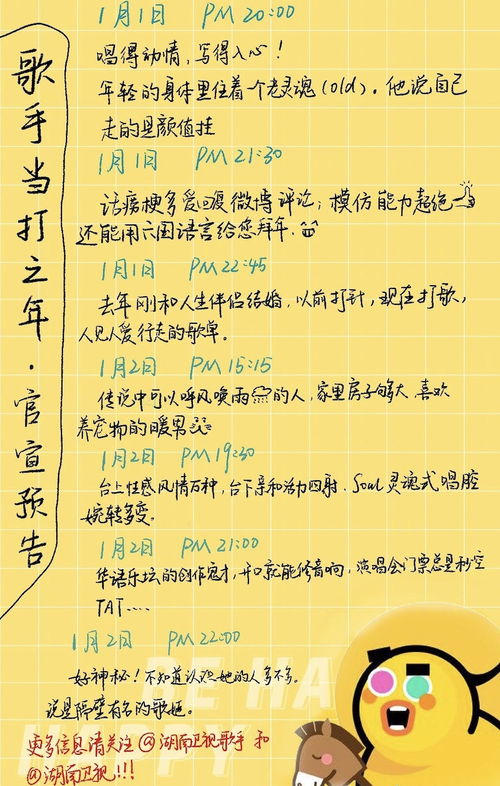 歌手当打之年·官宣预告
1月1日 PM 20:00
唱得动情，写得入心！
年轻的身体里住着一个老灵魂(old)。他说自己
走的是颜值挂
1月1日 PM 21:30
话痨梗多爱回复微博评论；模仿能力超绝
还能用六国语言给您拜年.
1月1日 PM 22:45
去年刚和人生伴侣结婚，以前打针，现在打歌，
人见人爱行走的歌单。
1月2日 PM 15:15
传说中可以呼风唤雨的人，家里房子够大 喜欢
养宠物的暖男
1月2日 PM 19:30
台上性感风情万种，台下亲和活力四射．Soul灵魂式唱腔
婉转多变.
1月2日 PM 21:00
华语乐坛的创作鬼才，开口就能修音响，演唱会门票总是秒空
TAT....
1月2日 PM 22:00
好神秘！不知道认识她的人多不多。
说是隔壁有名的歌姬。
更多信息请关注@湖南卫视歌手 和
@湖南卫视!!!
BE HA
H PPY